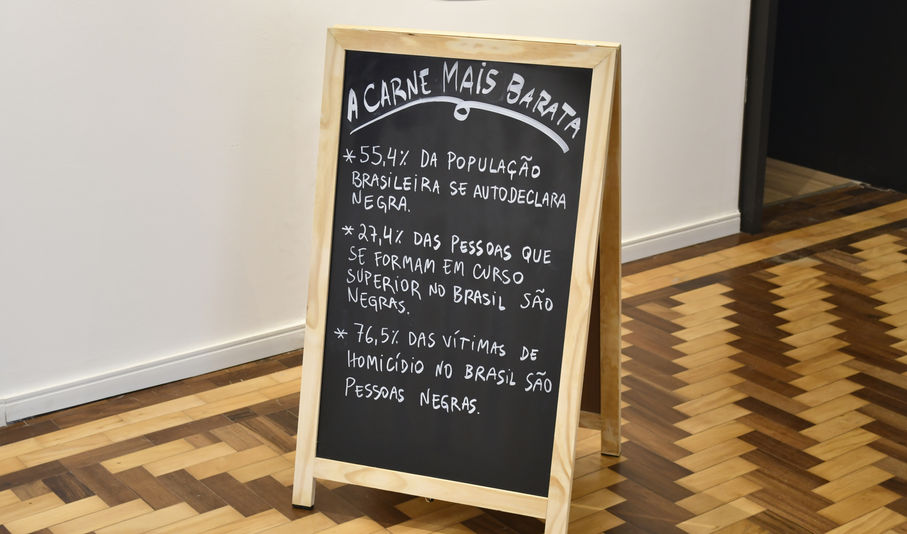 A CARNE MAIS BARATA
* 55,4% DA POPULAÇÃO
BRASILEIRA SE AUTODECLARA
NEGRA.
* 27,4% DAS PESSOAS QUE
SE FORMAM EM CURSO
SUPERIOR NO BRASIL SÃO
NEGRAS.
* 76,5% DAS VÍTIMAS DE
HOMICÍDIO NO BRASIL SÃO
PESSOAS NEGRAS.